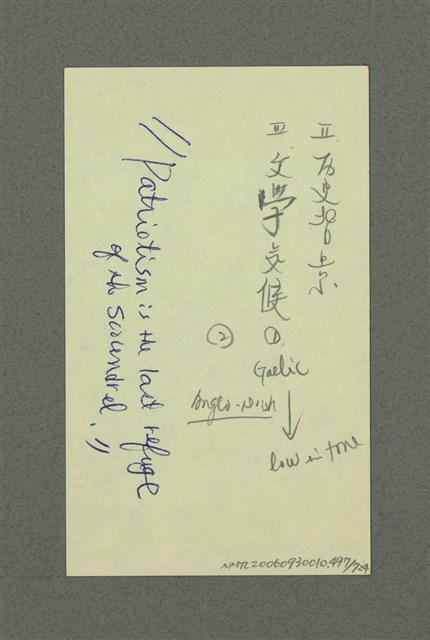 II. 历史背景
III. 文學气候
① Gaelic
low in tone
②
Anglo-Irish
"Patriotism is the last refuge
of the scoundrel."
NMTL20060930010.497/724